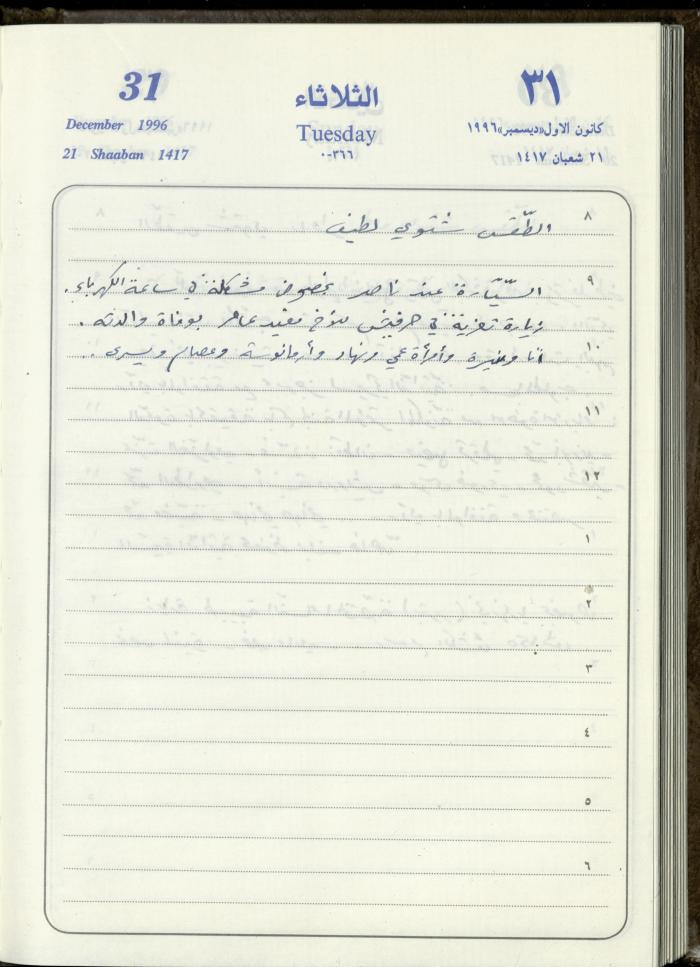 31
الثلاثاء
٣١
December 1996
Tuesday
كانون الاول «ديسمبر» ١٩٩٦
21 Shaaban 1417
٣٦٦-٠
٢١ شعبان ١٤١٧
٨
الطّقس شتوي لطيف
٩
السيّارة عند ناصر بخصوص مشكلة في ساعة الكهرباء.
زيارة تعزية في حرفيش للأخ مفيد عامر بوفاة والدته.
١٠
أنا ومنيرة وامرأة عمي ونهاد وأرمانوسة وعصام ويسرى..
١١
١٢
١
٢
٣
٤
٥
٦